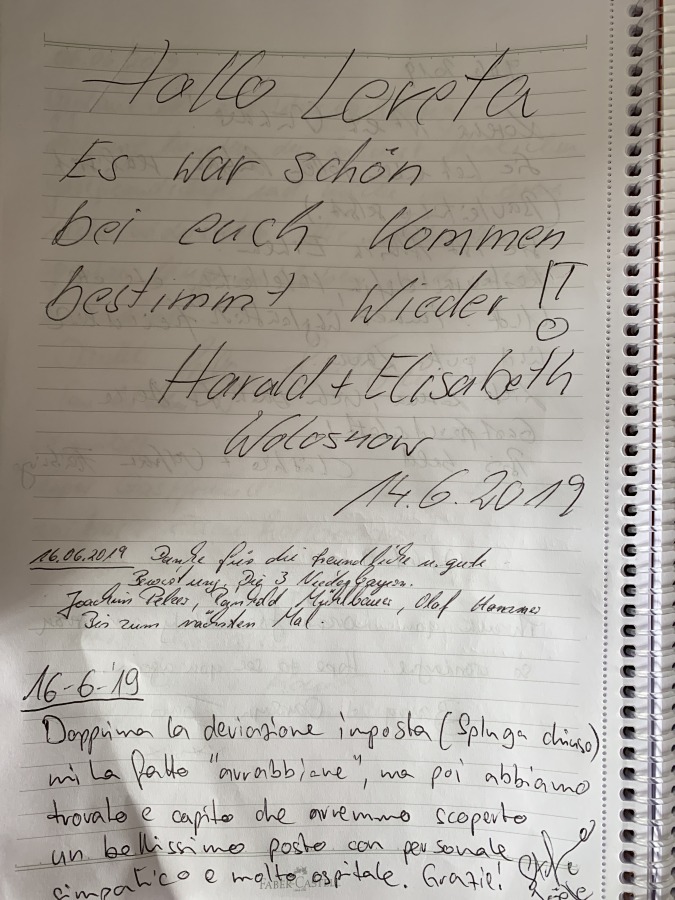 Hallo Loreta
Es war schön
bei euch Kommen
bestimmt Wieder !!
Harald + Elisabeth
Wolosnow
14.6.2019
16.06.2019 Danke für die freundliche u. gute
Bewirtung. Die 3 Niederbayern.
Joachim Peker, Reinhold Mühlbauer, Olaf Hammer
Bis zum nächsten Mal.
16-6-'19
Dapprima la deviazione imposta (Spluga chiuso)
mi ha fatto "arrabbiare", ma poi abbiamo
trovato e capito che avremmo scoperto
un bellissimo posto con personale
simpatico e molto ospitale. Grazie!
FABER-CASTELL